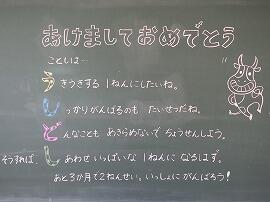 あけましておめでとう
ことしは…
うきうきする１ねんにしたいね。
しっかりがんばるのも たいせつだね。
どんなことも あきらめないで ちょうせんしよう。
そうすれば、しあわせいっぱいな１ねんに なるはず。
あと３か月で２ねんせい。いっしょにがんばろう！